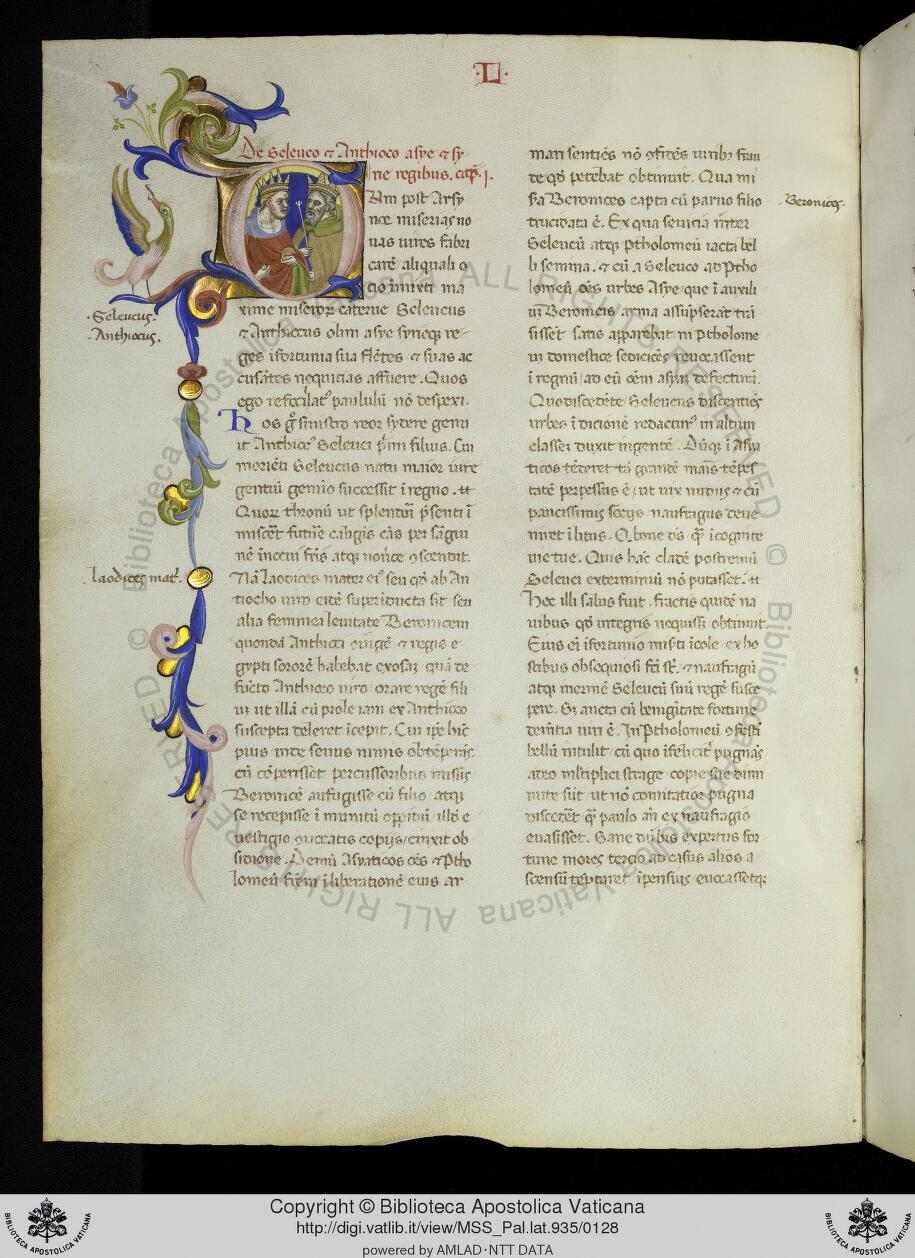 ·L·
De Seleuco ⁊ Anthioco asye ⁊ sy
rie regibus. cap̄. j.
am post Arsy
noe miserias no
uas uires fabri
care aliquali o
cio inixti ma
xime miseror̄ caterue Seleucus
⁊ Anthiocus olim asye syrieq; re
ges ifortunia sua flētes ⁊ suas ac
cusātes nequicias affuere. Quos
ego refocilatꝰ paululū nō despexi.
Hos gͦ sinistro reor sydere genu
it Anthiocꝰ Seleuci p̄mi filius. Cui
moriēti Seleucus natu maior iure
gentiū gemīo successit i regno.
Quor̄ thronū ut splendoī p̄senti ī
nē īnceui fr̄is atq; nouerce
Nā laodices mater eiꝰ seu qd̄ ab An
tiocho uiro eidē superiducta sit seu
alia feminea leuitate Beronicem
quondā Anthioci ⁊ regis e
gypti sororē habebat exosaʒ quā de
fūcto Anthioco uiro orare regē fili
uʒ ut illā cū prole iam ex Anthioco
suscepta deleret icepit. Cui ipe hic
pius inde seuus nimis obtēperās
cū cōperisset percussoribus missis
Beronicē aufugisse cū filio atq;
se recepisse ī munitū oppidū illd̄ e
uestigio copijs cinxit ob
sidione. Demū Asyaticos oēs ⁊ Ptho
lomeū frēm i liberationē eius ar
mari sentiēs nō ꝯfidēs uiribʒ frau
de qd̄ petebat obtinuit. Qua mi
sa Beronices capta cū paruo filio
trucidata ē. Ex qua seuicia inter
Seleucū atq; Ptholomeū iacta bel
li semina. ⁊ cū a Seleuco ad Ptho
lomeū oēs urbes Asye que ī auxili
uʒ Beronicis arma assūpserāt trā
sissēt satis apparebat ni Ptholome
uʒ domestice sediciōes reuocassent
ī regnū ad eū oēm asyaʒ defecturā.
Quo discedēte Seleucus discentiēs
urbes ī dicionē redacturꝰ in altum
classeʒ duxit ingentē. Dūq; ī Asya
ticos tēderet tā grandē maris tēpes
tatē perpessus ē ut uix nudus ⁊ cū
paucissimis socijs naufragus deue
niret ī litus. O bone ds̄ q̄ʒ icognite
uie tue. Quis hāc cladē postremū
Seleuci exterminiū nō putasset.
Hec illi salus fuit. fractis quidē na
uibus qd̄ integris nequissʒ obtinuit.
Eius eī ifortunio misti icole ex ho
stibus obsequiosi fc̄i st̄. ⁊ naufragū
atq; inermē Seleucū suū regē susce
pere. Et aucta cū benignitate fortune
demētia uiri ē. In Ptholomeū ꝯfestī
bellū intulit cū quo ifelicitʼ pugnās
adeo mltiplici strage copie sue dimi
nute sūt ut nō comitatior pugna
discederēt q̄ʒ paulo an̄ ex naufragio
euasisset. Sane duʒbis expertus for
tune mores tercio ad casus alios a
scensū tēptaret īpensius euocassetq;
·Seleucus·
Anthiocus.
·laodices mat̄.
·Beronices·
Copyright © Biblioteca Apostolica Vaticana
http://digi.vatlib.it/view/MSS_Pal.lat.935/0128
powered by AMLAD·NTT DATA
BIBLIOTECA APOSTOLICA VATICANA
BIBLIOTECA APOSTOLICA VATICANA
© Biblioteca Apostolica Vaticana ALL RIGHTS RESERVED